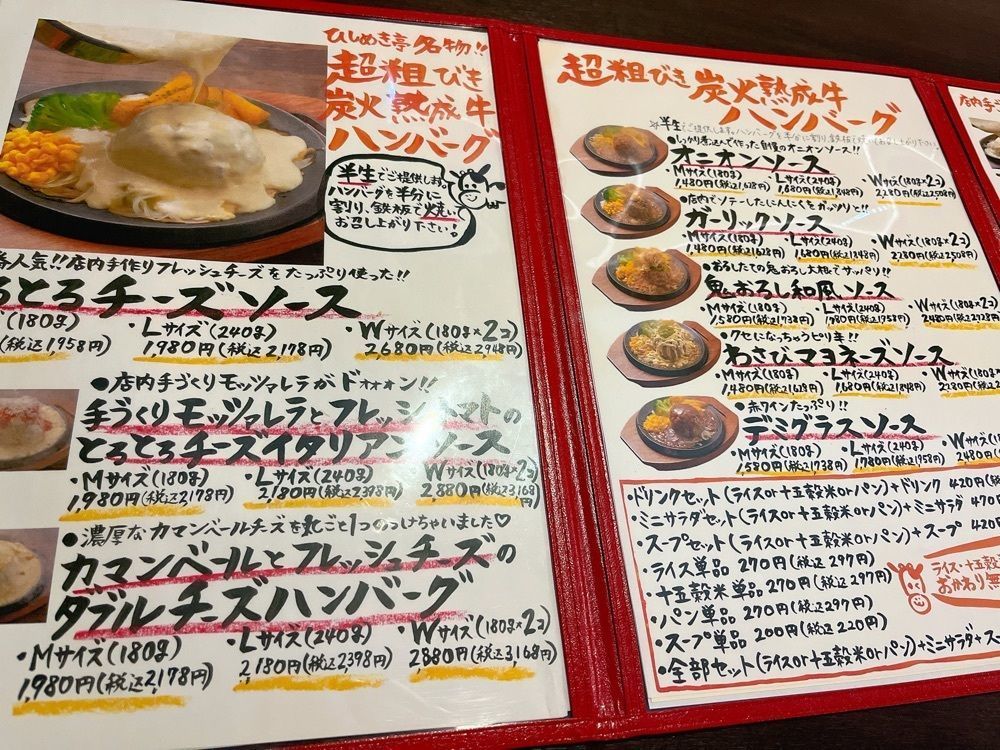 ひしめき亭 名物!!
超粗びき
炭火熟成牛
ハンバーグ
半生でご提供します。
ハンバーグを半分に
割り、鉄板で焼い
お召し上がり下さい!
人気!!店内手作りフレッシュチーズをたっぷり使った!!
とろチーズソース
(180g)
(税込1,958円)
・Lサイズ(240g)
1,980円(税込2,178円)
・Wサイズ(180g×2コ)
2680円(税込2948円)
●店内手づくりモッツァレラがドォォォン!!
手づくりモッツァレラとフレッシュトマトの
とろとろチーズイタリアンソース
・Mサイズ(180g)
1,980円(税込2,178円)
・Lサイズ(240g)
2,180円(税込2,398円)
・Wサイズ(180g×2コ)
2880円(税込3,168円)
●濃厚なカマンベールチーズを丸ごと1つのっけちゃいました♡
カマンベールとフレッシュチーズの
ダブルチーズハンバーグ
・Mサイズ(180g)
1,980円(税込2,178円)
・Lサイズ(240g)
2,180円(税込2,398円)
・Wサイズ(180g×2コ)
2880円(税込3,168円)
超粗びき 炭火熟成牛
ハンバーグ
☆半生でご提供します。ハンバーグを半分に割り、鉄板で焼いてお召し上がり下さい
●しっかり煮込んで作った自慢のオニオンソース!!
オニオンソース
・Mサイズ(180g)
1,480円(税込1,628円)
・Lサイズ(240g)
1,680円(税込1,848円)
・Wサイズ(180g×2コ)
2,280円(税込2,508円)
●店内でソテーしたにんにくをガッツリと!!
ガーリックソース
・Mサイズ(180g)
1,480円(税込1,628円)
・Lサイズ(240g)
1,680円(税込1,848円)
・Wサイズ(180g×2コ)
2,280円(税込2,508円)
●おろしたての鬼おろし大根でサッパリ!!
鬼おろし和風ソース
・Mサイズ(180g)
1,580円(税込1,738円)
・Lサイズ(240g)
1,780円(税込1,958円)
・Wサイズ(180g×2コ)
●クセになっちゃうピリ辛!!
わさびマヨネーズソース
・Mサイズ(180g)
1,480円(税込1,628円)
・Lサイズ(240g)
1,680円(税込1,848円)
・Wサイズ(180g
●赤ワインたっぷり!!
デミグラスソース
・Mサイズ(180g)
1,580円(税込1,738円)
・Lサイズ(240g)
1,780円(税込1,958円)
・Wサイズ
2,480円
・ドリンクセット(ライスor十五穀米orパン)+ドリンク 420円(税
・ミニサラダセット(ライスor十五穀米orパン)+ミニサラダ 470
・スープセット(ライスor十五穀米orパン)+スープ 420
・ライス単品 270円(税込297円)
・十五穀米単品 270円(税込297円)
・パン単品 270円(税込297円)
・スープ単品 200円(税込220円)
・全部セット(ライスor十五穀米orパン)+ミニサラダ+ス
ライス・十五穀
おかわり無
店内手